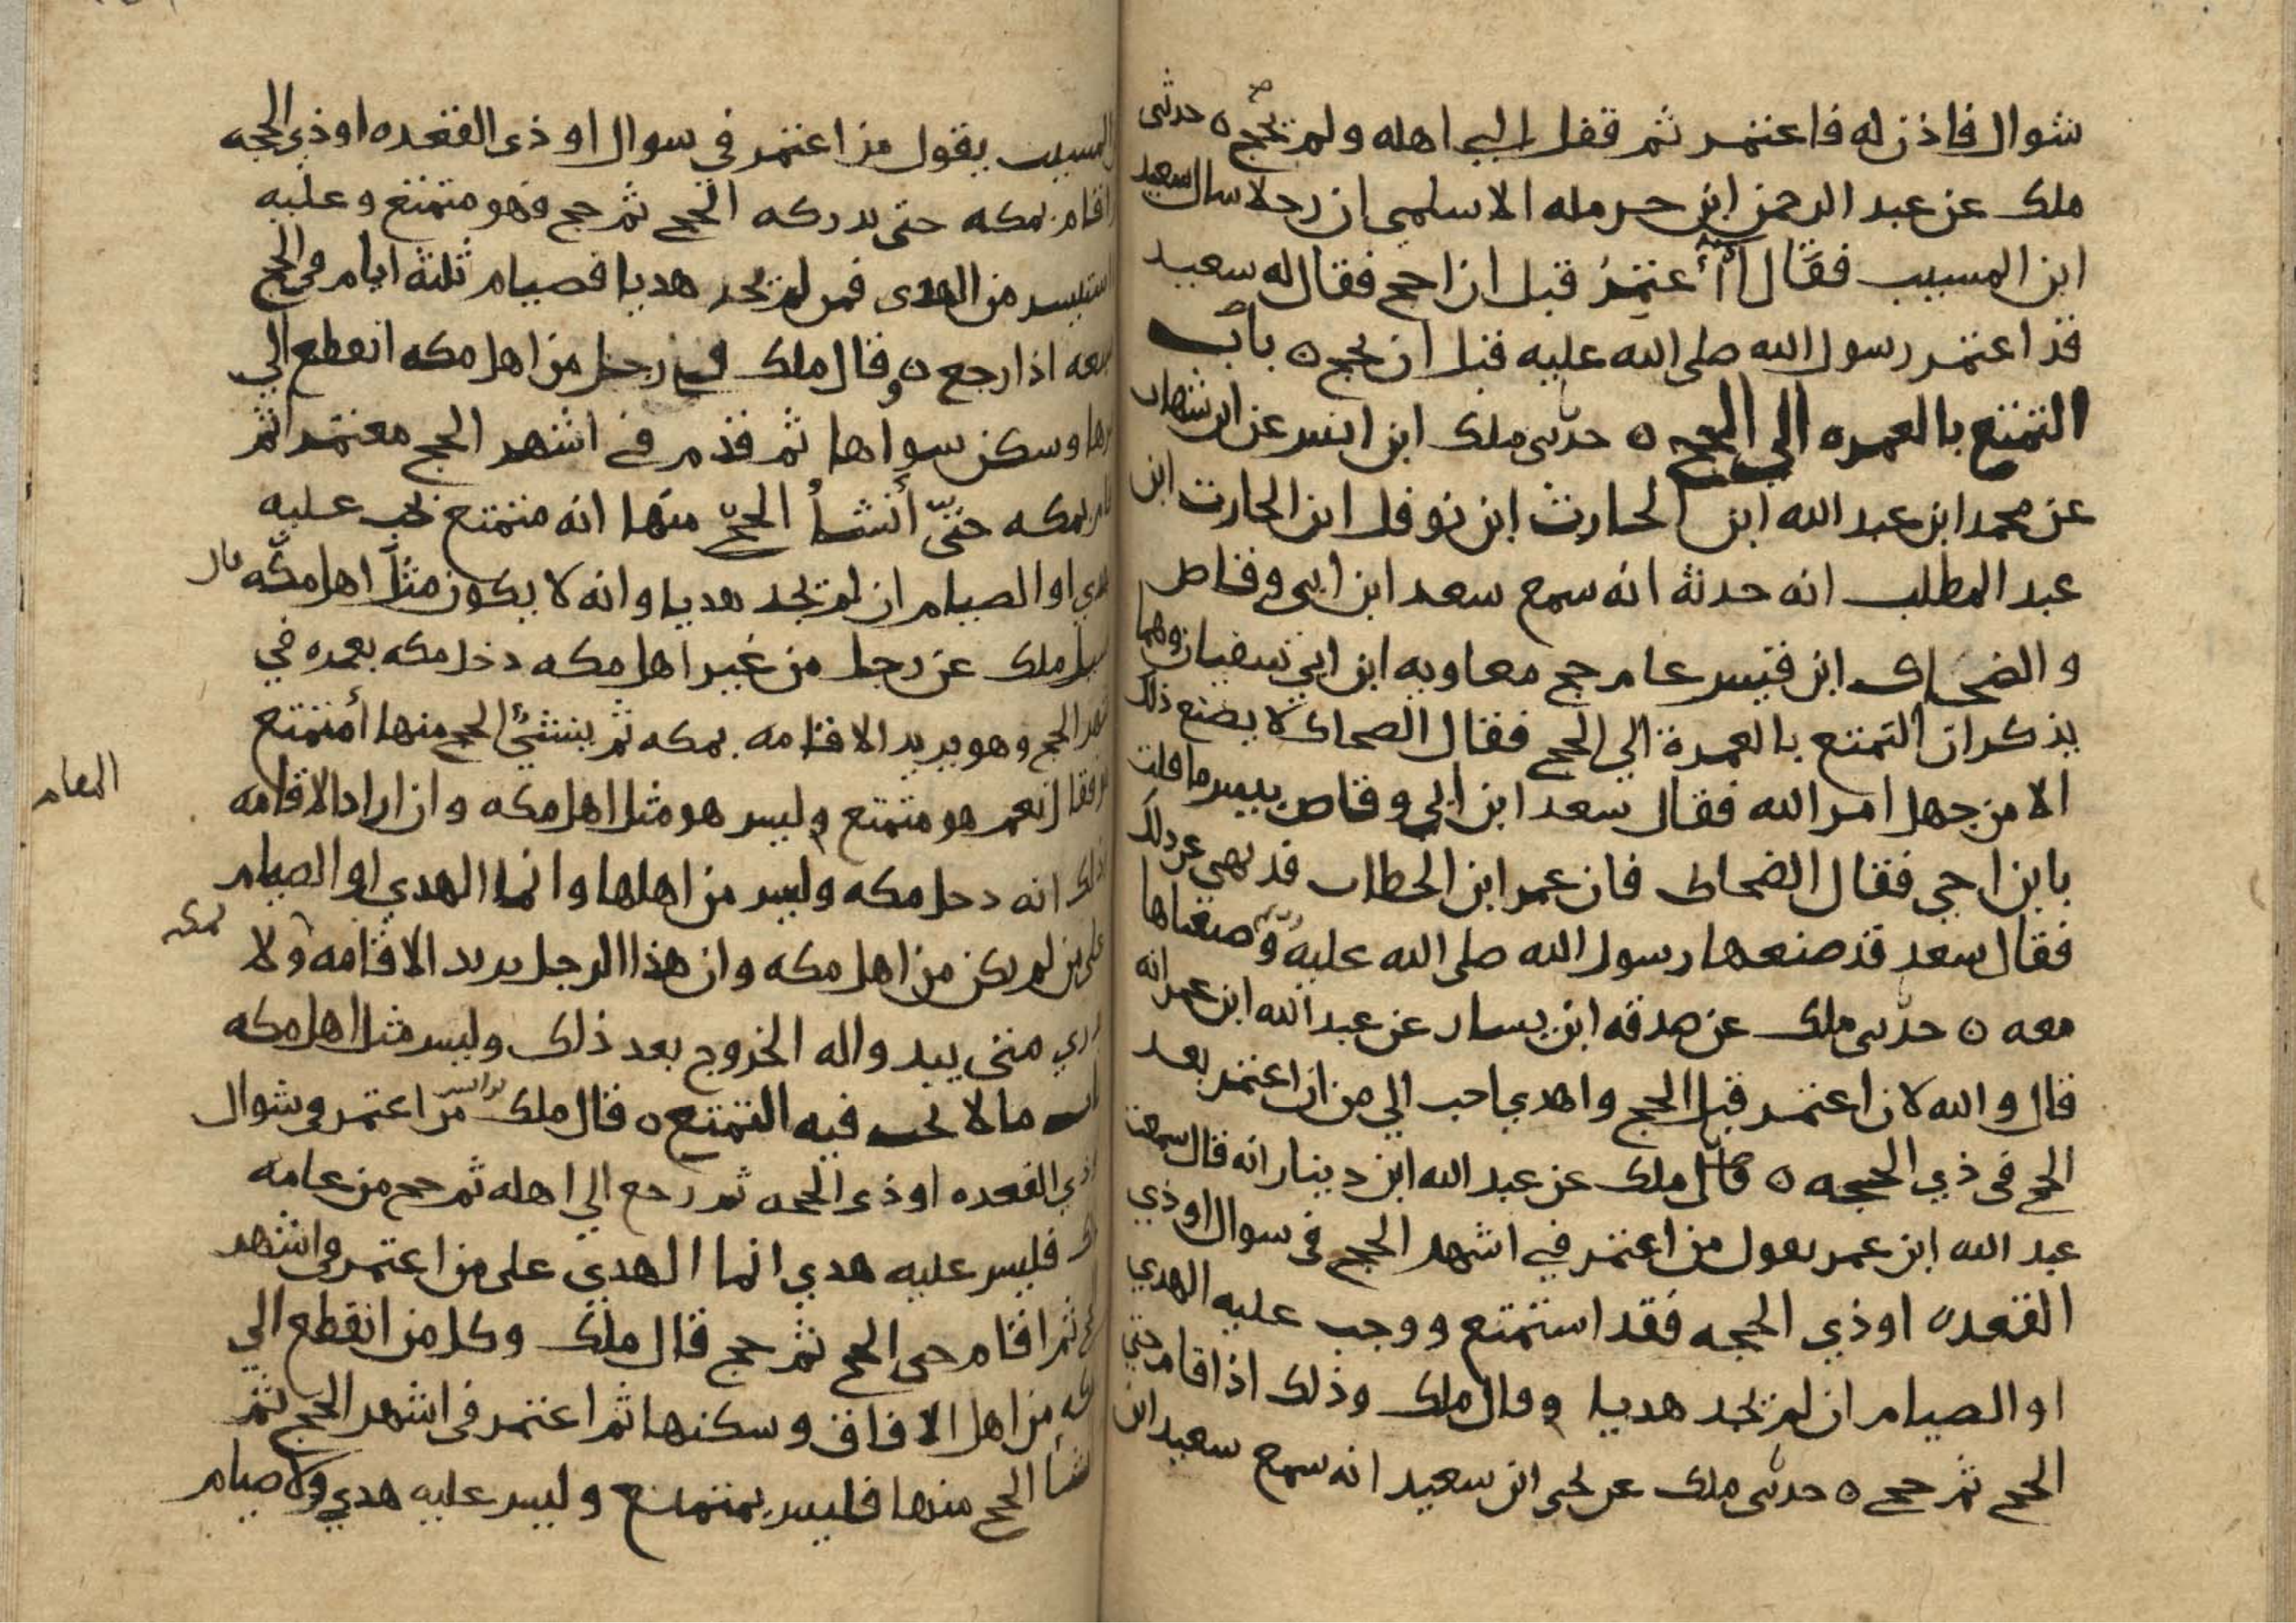 شوال فاذن له فاعتمر ثم قفل الي اهله ولم يحج ه حدثني
ملك عن عبد الرحمن ابن حرمله الاسلمي ان رجلا سال سعيد
ابن المسيب فقال أأعتمر قبل ان احج فقال له سعيد
قد اعتمر رسول الله صلى الله عليه قبل ان يحج ه باب
التمتع بالعمره الي الحج ه حدثني ملك ابن انس عن ابن شهاب
عن محمد ابن عبد الله ابن الحارث ابن نوفل ابن الحارث ابن
عبد المطلب انه حدثه انه سمع سعد ابن ابي وقاص
والضحاك ابن قيس عام حج معاويه ابن ابي سفيان وهما
يذكران التمتع بالعمرة الي الحج فقال الضحاك لا يصنع ذلك
الا من جهل امر الله فقال سعد ابن ابي وقاص بيس ما قلت
يابن اخي فقال الضحاك فان عمر ابن الخطاب قد نهى عن ذلك
فقال سعد قد صنعها رسول الله صلى الله عليه وصنعناها
معه ه حدثني ملك عن صدقه ابن يسار عن عبد الله ابن عمر انه
قال والله لان اعتمر قبل الحج واهدي احب الي من ان اعتمر بعد
الحج في ذي الحجه ه قال ملك عن عبد الله ابن دينار انه قال سمعت
عبد الله ابن عمر يقول من اعتمر في اشهر الحج في شوال او ذي
القعده او ذي الحجه فقد استمتع ووجب عليه الهدي
او الصيام ان لم يجد هديا وقال ملك وذلك اذا اقام حتى
الحج ثم حج ه حدثني ملك عن يحيى ابن سعيد انه سمع سعيد ابن
المسيب يقول من اعتمر في شوال او ذي القعده او ذي الحجه
اقام بمكه حتى يدركه الحج ثم حج فهو متمتع وعليه
استيسر من الهدى فمن لم يجد هديا فصيام ثلثة ايام في الحج
سبعه اذا رجع ه وقال ملك في رجل من اهل مكه انقطع الي
غيرها وسكن سواها ثم قدم في اشهر الحج معتمرا ثم
بمكه حتى أنشأ الحج منها انه متمتع يجب عليه
الهدي او الصيام ان لم يجد هديا وانه لا يكون مثل اهل مكه قال
سيل ملك عن رجل من غير اهل مكه دخل مكه بعمره في
اشهر الحج وهو يريد الاقامه بمكه ثم ينشئ الحج منها أمتمتع
هو فقال نعم هو متمتع وليس هو مثل اهل مكه وان اراد الاقامه
المقام
ذلك انه دخل مكه وليس من اهلها وانما الهدي او الصيام
على من لم يكن من اهل مكه وان هذا الرجل يريد الاقامه ولا
بمكه
يدري متى يبدوا له الخروج بعد ذلك وليس مثل اهل مكه
باب ما لا يجب فيه التمتع ه قال ملك من اعتمر في شوال
او ذي القعده او ذي الحجه ثم رجع الي اهله ثم حج من عامه
ذلك فليس عليه هدي انما الهدي على من اعتمر في اشهر
الحج ثم اقام حتى الحج ثم حج قال ملك وكل من انقطع الي
مكه من اهل الافاق وسكنها ثم اعتمر في اشهر الحج ثم
انشأ الحج منها فليس بمتمتع وليس عليه هدي ولا صيام